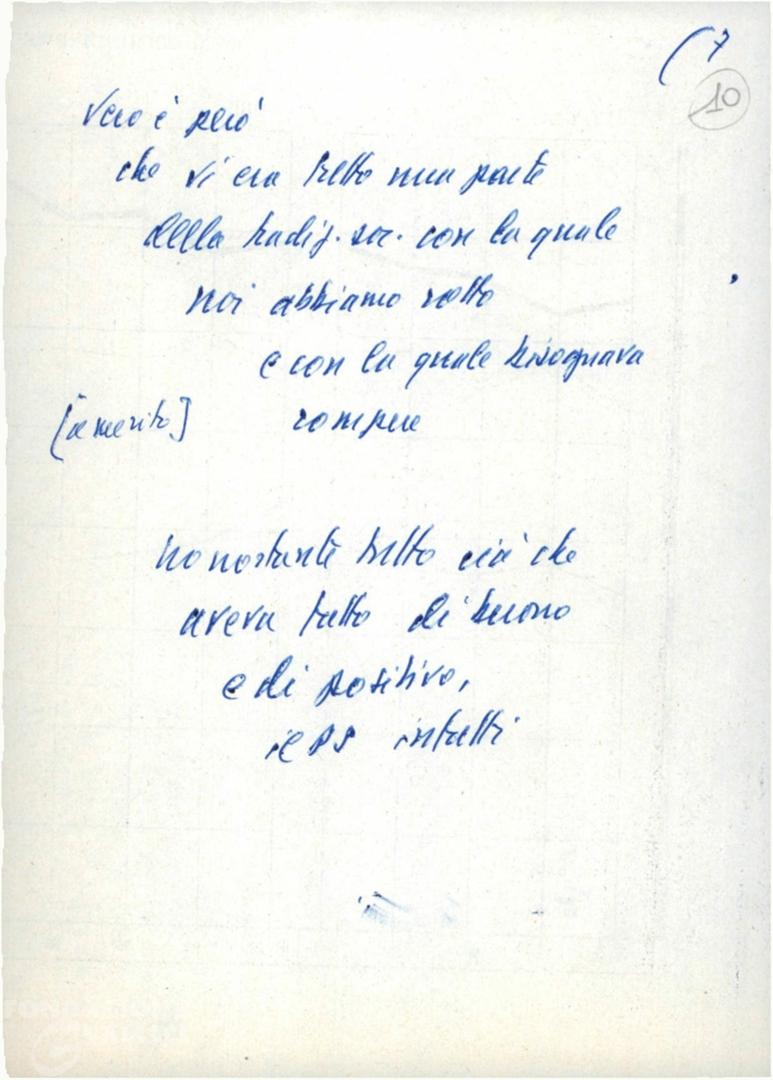 (7
10
Vero è però
che vi era tutta una parte
della tradiz. soc. con la quale
noi abbiamo rotto
e con la quale bisognava
[a merito] rompere
nonostante tutto ciò che
aveva fatto di buono
e di positivo,
il PS infatti